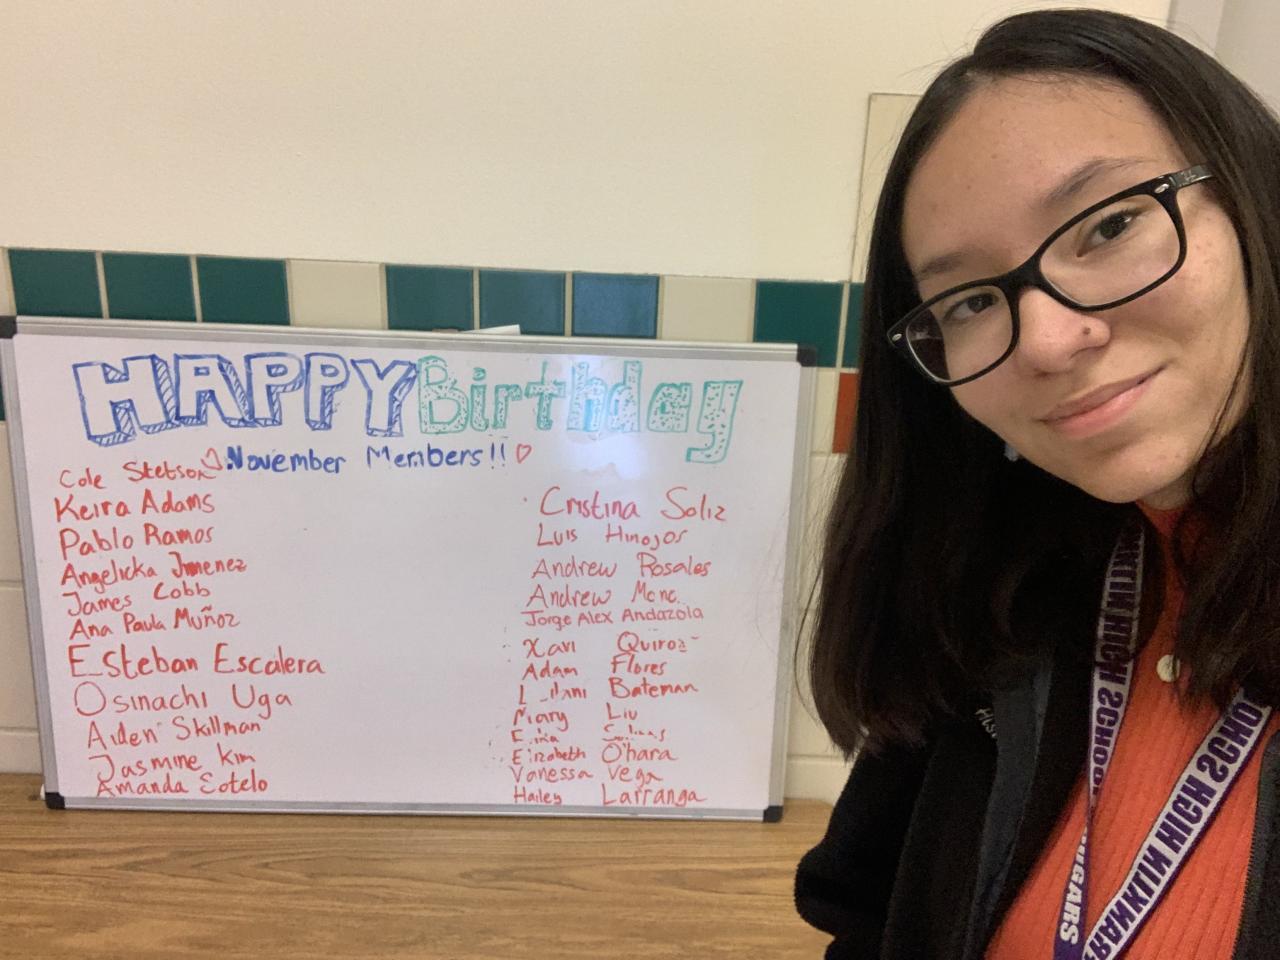 HAPPY Birthday
November Members!!
Cole Stetson
Keira Adams
Pablo Ramos
Angelicka Jimenez
James Cobb
Ana Paula Muñoz
Esteban Escalera
Osinachi Uga
Aiden Skillman
Jasmine Kim
Amanda Sotelo
Cristina Soliz
Luis Hinojos
Andrew Rosales
Andrew
Jorge Alex Andazola
Xavi Quiroz
Adam Flores
Bateman
Mary Liu
Elizabeth O'hara
Vanessa Vega
Hailey Larranga
FRANKLIN HIGH SCHOOL
FRANKLIN HIGH SCHOOL
COUGARS